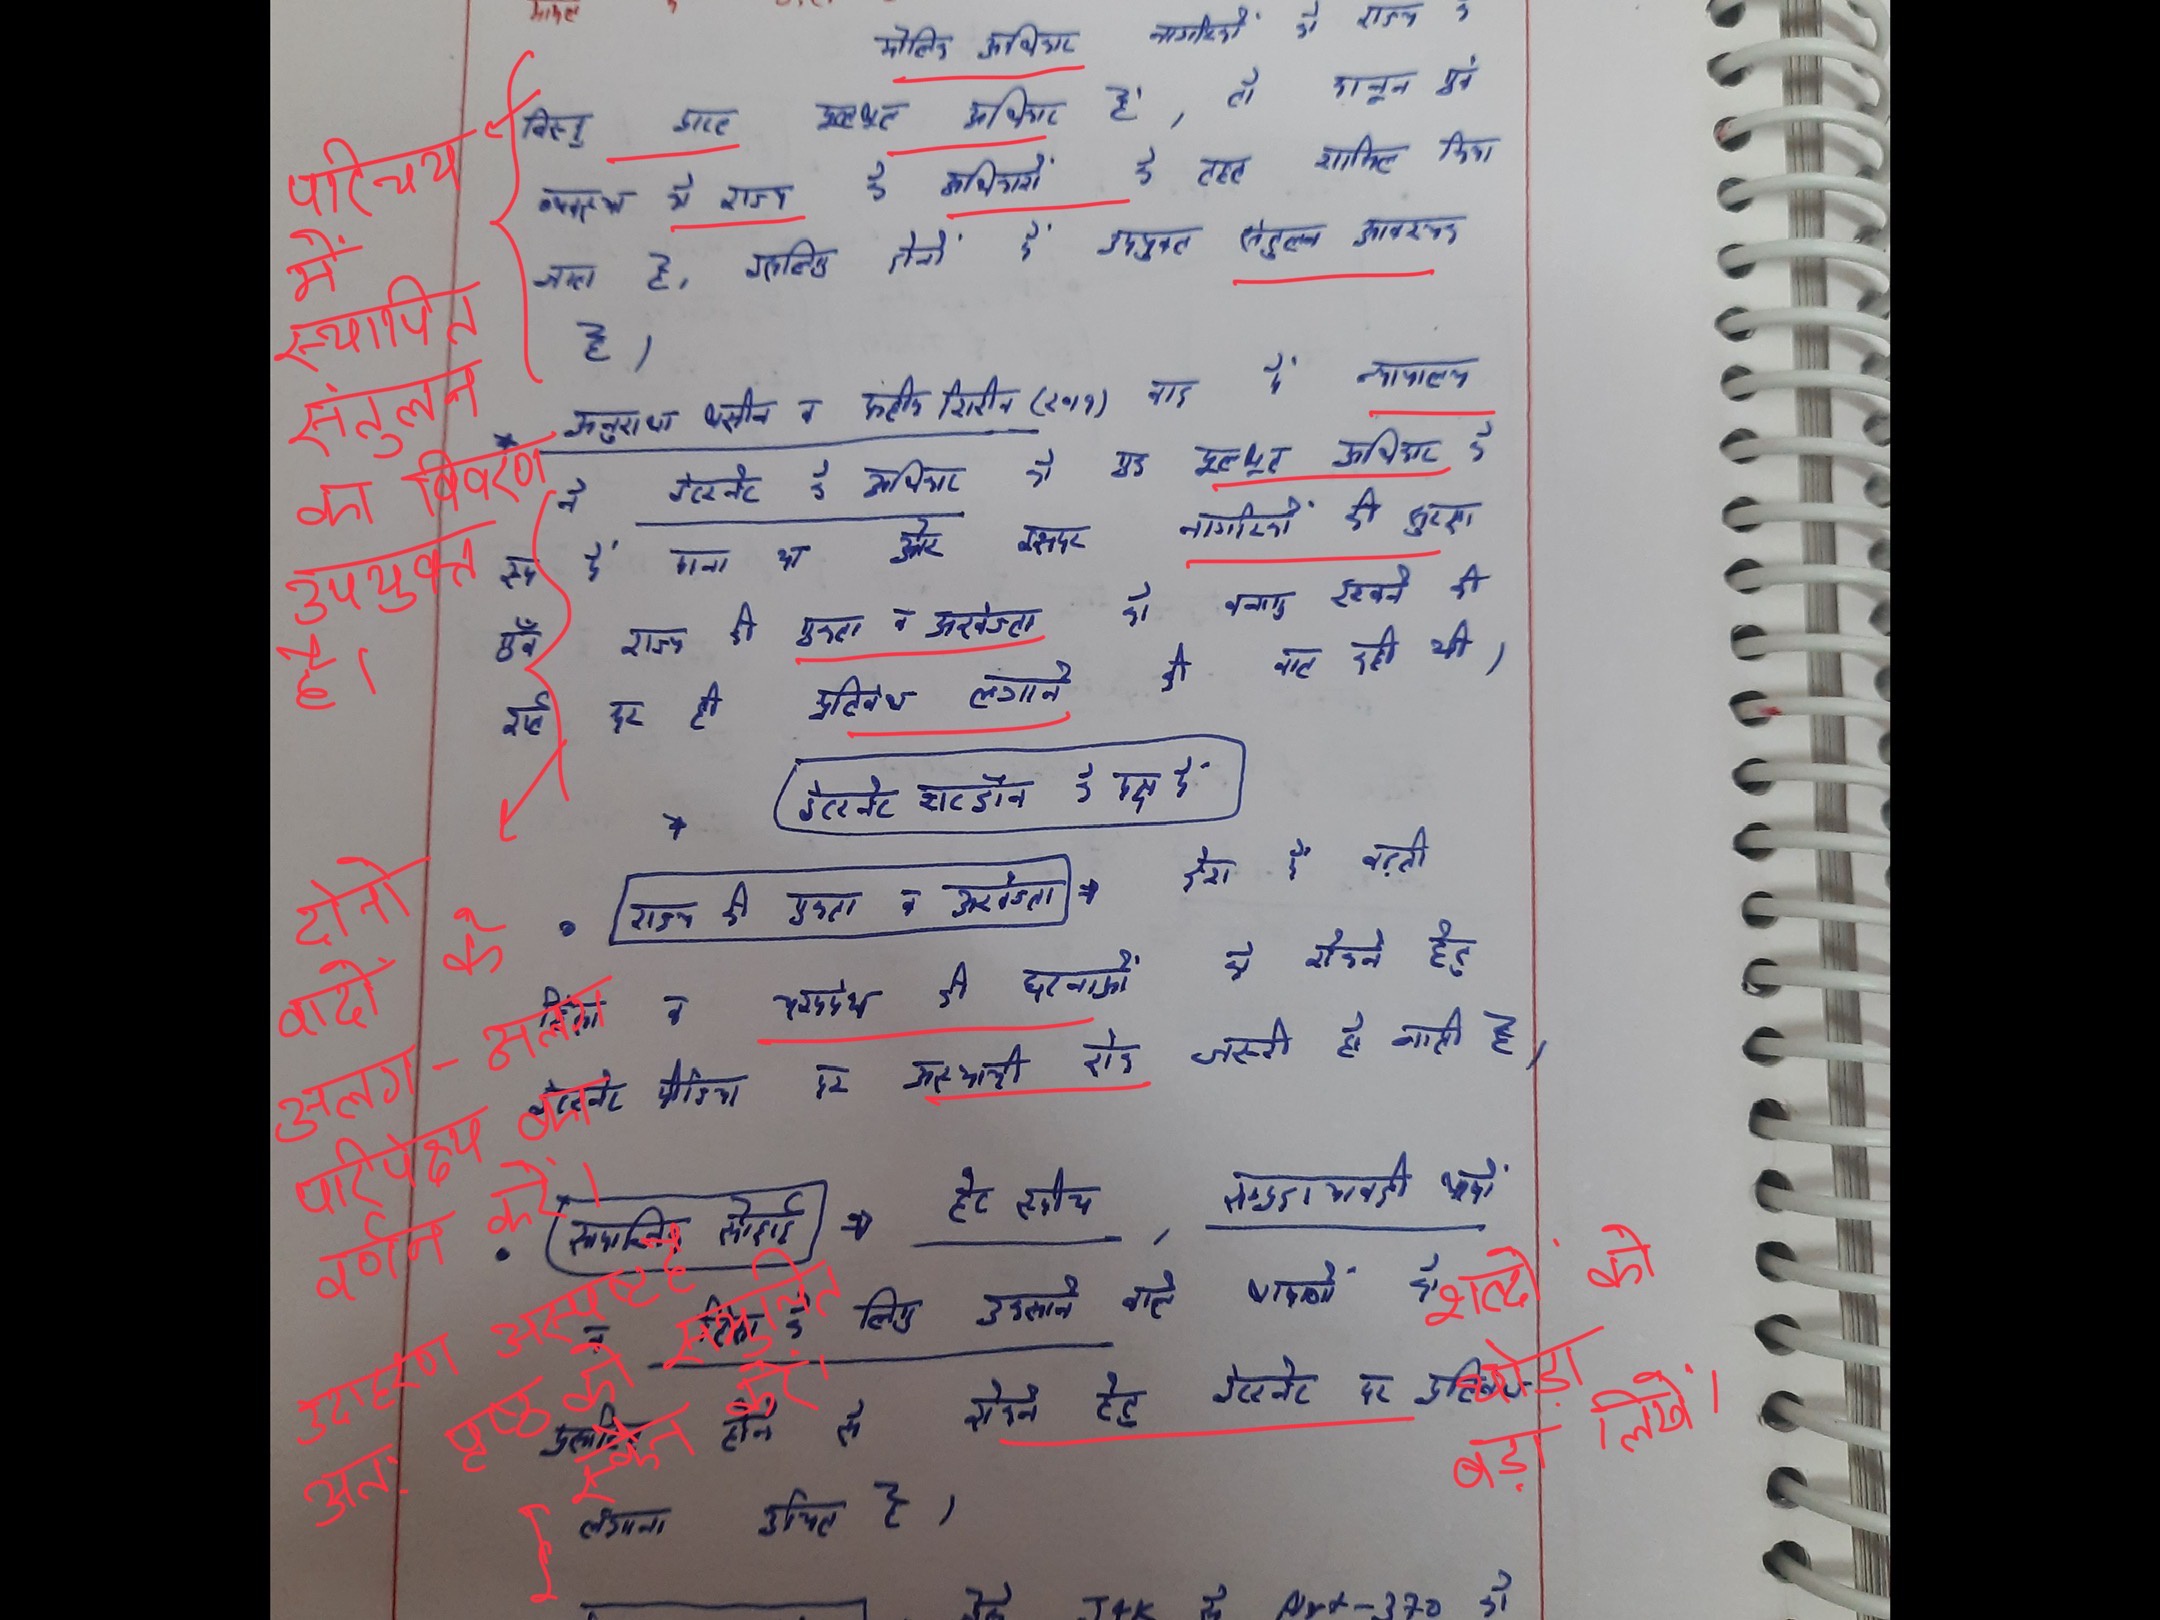 मौलिक अधिकार नागरिकों को राज्य के
विरुद्ध प्राप्त मूलभूत अधिकार हैं, तो कानून एवं
व्यवस्था को राज्य के अधिकारों के तहत शामिल किया
जाता है, इसलिए दोनों में उपयुक्त संतुलन आवश्यक
है,
* अनुराधा भसीन व फहीमा शिरीन (2019) वाद में न्यायालय
ने इंटरनेट के अधिकार को एक मूलभूत अधिकार के
रूप में माना था और इसपर नागरिकों की सुरक्षा
एवं राज्य की एकता व अखंडता को बनाए रखने की
शर्त पर ही प्रतिबंध लगाने की बात कही थी,
* इंटरनेट शटडॉन के पक्ष में
• राज्य की एकता व अखंडता → देश में बढ़ती
हिंसा व की घटनाओं को रोकने हेतु
इंटरनेट मीडिया पर अस्थायी रोक जरूरी हो जाती है,
• सामाजिक सौहार्द → हेट स्पीच, सम्प्रदायवादी भावों
व हिंसा के लिए उकसाने वाले भाषणों को
प्रसारित होने से रोकने हेतु इंटरनेट पर प्रतिबंध
लगाना उचित है,
जैसे J&K से Art-370 को
परिचय
में
स्थापित
संतुलन
का विवरण
उपयुक्त
है।
दोनों
वादों के
अलग-अलग
परिपेक्ष्य का
वर्णन करें।
उदाहरण अस्पष्ट है
अतः पृष्ठ को समुचित
स्कैन करें।
शब्दों को
थोड़ा
बड़ा लिखें।